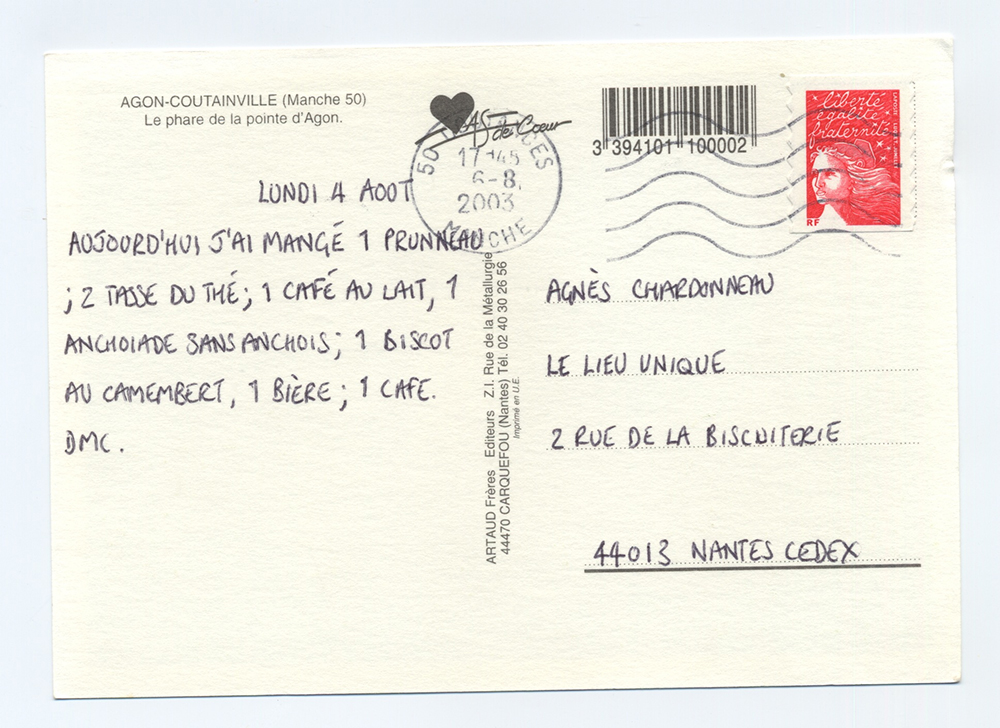 AGON-COUTAINVILLE (Manche 50)
Le phare de la pointe d'Agon.
LUNDI 4 AOOT
AUJOURD'HUI J'AI MANGÉ 1 PRUNNEAU
; 2 TASSE DU THÉ; 1 CAFÉ AU LAIT, 1
ANCHOIADE SANS ANCHOIS; 1 BISCOT
AU CAMEMBERT, 1 BIÈRE; 1 CAFE.
DMC.
de Cœur
50
17
6-8
2003
MANCHE
3 394101 100002
liberté
égalité
fraternité
RF
ARTAUD Frères Editeurs Z.I. Rue de la Métallurgie
44470 CARQUEFOU (Nantes) Tél. 02 40 30 26 56
Imprimé en U.E.
AGNÈS CHARDONNEAU
LE LIEU UNIQUE
2 RUE DE LA BISCUITERIE
44013 NANTES CEDEX